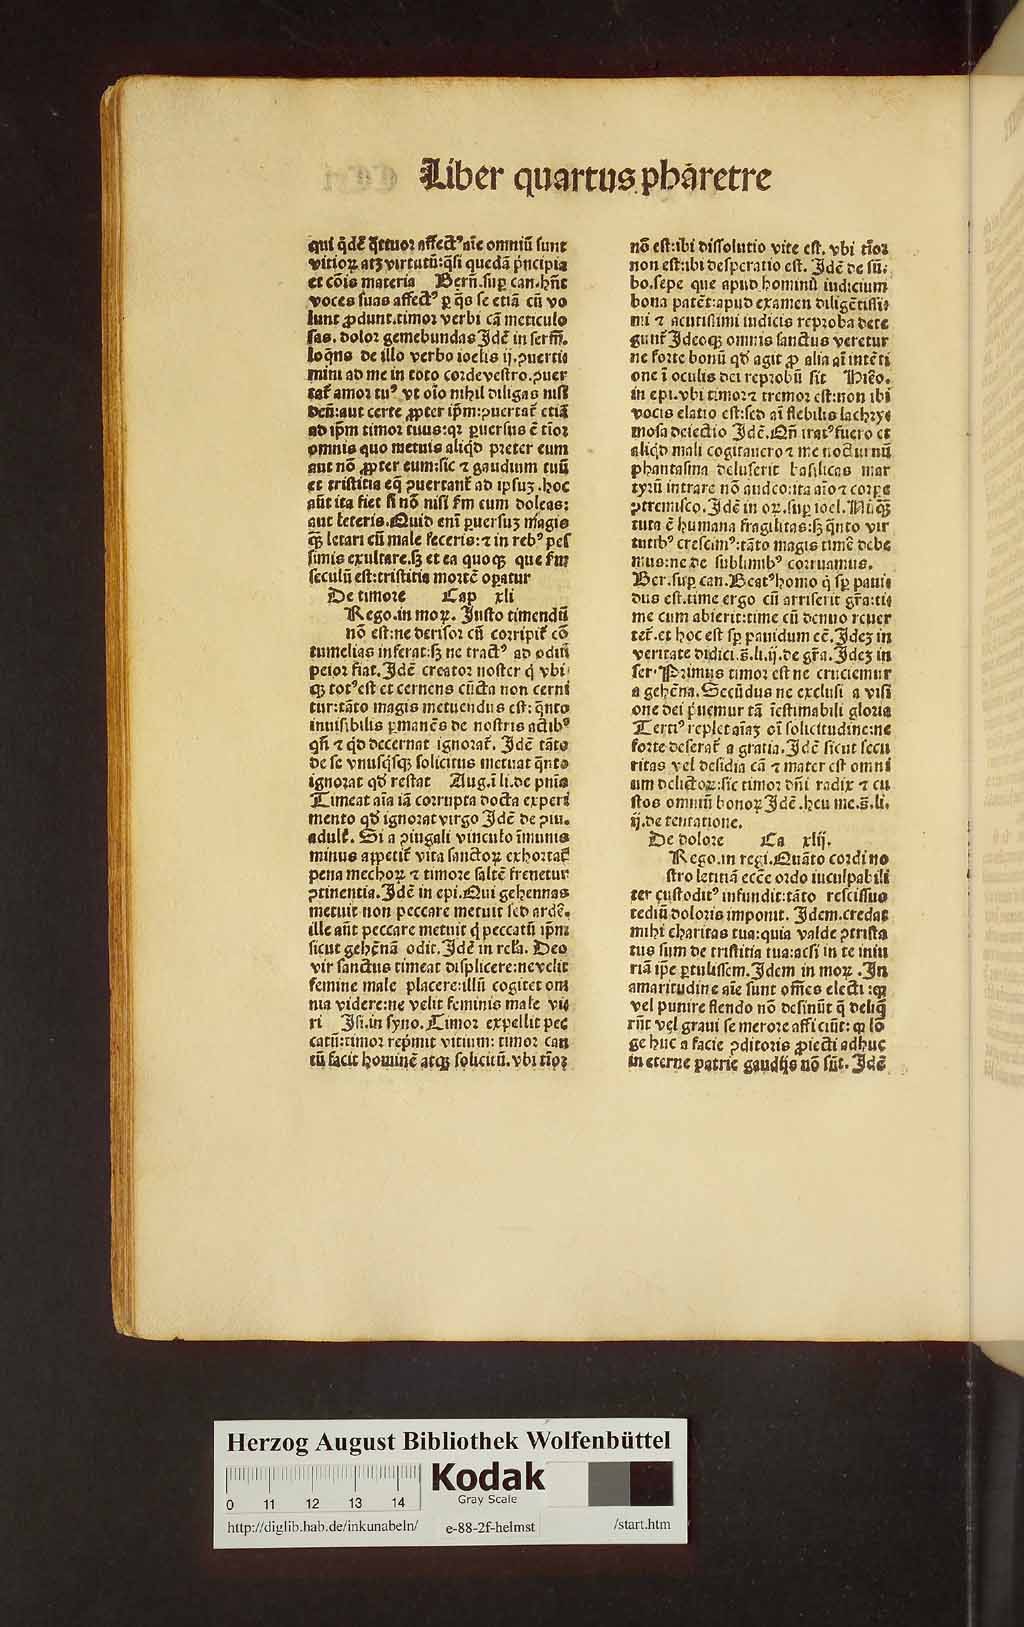 Liber quartus pharetre
qui q̄dē q̄ttuor affectꝰ aīe omniū sunt
vitioꝝ atqꝫ virtutū: q̄si quedā p̄ncipia
et cōis materia Bern̄. suꝑ can. hn̄t
voces suas affectꝰ ꝑ q̄s se etiā cū vo
lunt ꝓdunt. timor verbi cā meticulo
sas. dolor gemebundas Idē in serm̄.
loq̄ns de illo verbo ioelis ij. ꝯuerti
mini ad me in toto corde vestro. ꝯuer
tat̄ amor tuꝰ vt oīo nihil diligas nisi
deū: aut certe ꝓpter ip̄m: ꝯuertat̄ etiā
ad ip̄m timor tuus: qꝛ ꝑuersus ē tīor
omnis quo metuis aliq̄d preter eum
aut nō ꝓpter eum: sic ⁊ gaudium tuū
et tristitia eq̄ ꝯuertant̄ ad ipsuꝫ. hoc
aūt ita fiet si nō nisi fm̄ eum doleas:
aut leteris. Quid enī ꝑuersuꝫ magis
qꝫ̄ letari cū male feceris: ⁊ in rebꝰ pes
simis exultare. sꝫ et ea quoqꝫ que fm̄
seculū est: tristitia mortē oꝑatur
De timore Cap xli
Rego. in moꝝ. Iusto timendū
nō est: ne derisor cū corripit̄ cō
tumelias inferat: sꝫ ne tractꝰ ad odiū
peior fiat. Idē creator noster q̄ vbi
qꝫ totꝰ est et cernens cūcta non cerni
tur: tāto magis metuendus est: q̄nto
inuisibilis ꝑmanēs de nostris actibꝰ
qn̄ ⁊ qd̄ decernat ignorat̄. Idē tāto
de se vnusq̄sqꝫ solicitus metuat q̄nto
ignorat qd̄ restat Aug. ī li. de pnīa
Timeat aīa iā corrupta docta experi
mento qd̄ ignorat virgo Idē de ꝯiu.
adult̄. Si a ꝯiugali vinculo īmunis
minus appetit̄ vita sanctoꝝ exhortat̄
pena mechoꝝ ⁊ timore saltē frenetur
ꝯtinentia. Idē in epi. Qui gehennas
metuit non peccare metuit sed ardē.
ille aūt peccare metuit q̄ peccatū ip̄m
sicut gehēnā odit. Idē in reła. Deo
vir sanctus timeat displicere: ne velit
femine male placere: illū cogitet om
nia videre: ne velit feminis male vi
ri Isi. in syno. Timor expellit pec
catū: timor rep̄mit vitium: timor cau
tū facit hominē atqꝫ solicitū. vbi tīor
nō est: ibi dissolutio vite est. vbi tīor
non est: ibi desperatio est. Idē de sū.
bo. sepe que apud hominū iudicium
bona patēt: apud examen diligētissi
mi ⁊ acutissimi iudicis reproba dete
gunt̄ Ideoqꝫ omnis sanctus veretur
ne forte bonū qd̄ agit ꝓ alia aī intēti
one ī oculis dei reprobū sit Hiēo.
in epi. vbi timor ⁊ tremor est: non ibi
vocis elatio est: sed aī flebilis lachry
mosa deiectio Idē. Qn̄ iratꝰ fuero et
aliqd̄ mali cogitauero ⁊ me nocturnū
phantasma deluserit basilicas mar
tyrū intrare nō audeo: ita aīo ⁊ corꝑe
ꝯtremisco. Idē in oꝝ. suꝑ ioel. Nūqꝫ̄
tuta ē humana fragilitas: sꝫ q̄nto vir
tutibꝰ crescimꝰ: tāto magis timē debe
mus: ne de sublimibꝰ corruamus.
Ber. suꝑ can. Beatꝰ homo q̄ sꝑ paui
dus est. time ergo cū arriserit gr̄a: ti
me cum abierit: time cū denuo reuer
tet̄. et hoc est sꝑ pauidum eē. Ideꝫ in
veritate didici. s̄. li. ij. de gr̄a. Ideꝫ in
ser. Primus timor est ne cruciemur
a gehēna. Secūdus ne exclusi a visi
one dei p̄uemur tā īestimabili gloria
Tertiꝰ replet aīaꝫ oī solicitudine: ne
forte deserat̄ a gratia. Idē sicut secu
ritas vel desidia cā ⁊ mater est omni
um delictoꝝ: sic timor dn̄i radix ⁊ cu
stos omniū bonoꝝ Idē. heu me. s̄. li.
ij. de tentatione.
De dolore Ca xlij.
Rego. in regi. Quāto cordi no
stro letitiā ecc̄e ordo inculpabili
ter custoditꝰ infundit: tāto rescissus
tediū doloris imponit. Idem. credat
mihi charitas tua: quia valde ꝯtrista
tus sum de tristitia tua: acsi in te iniu
riā ip̄e ꝑtulissem. Idem in moꝝ. In
amaritudine aīe sunt om̄es electi: qꝫ
vel punire flendo nō desinūt q̄ deliq̄
rūt vel graui se merore afficiūt: qꝫ lō
ge huc a facie ꝯditoris ꝓiecti adhuc
in eterne patrie gaudijs nō sūt. Idē
Herzog August Bibliothek Wolfenbüttel
Kodak
Gray Scale
0 11 12 13 14
http://diglib.hab.de/inkunabeln/ e-88-2f-helmst /start.htm